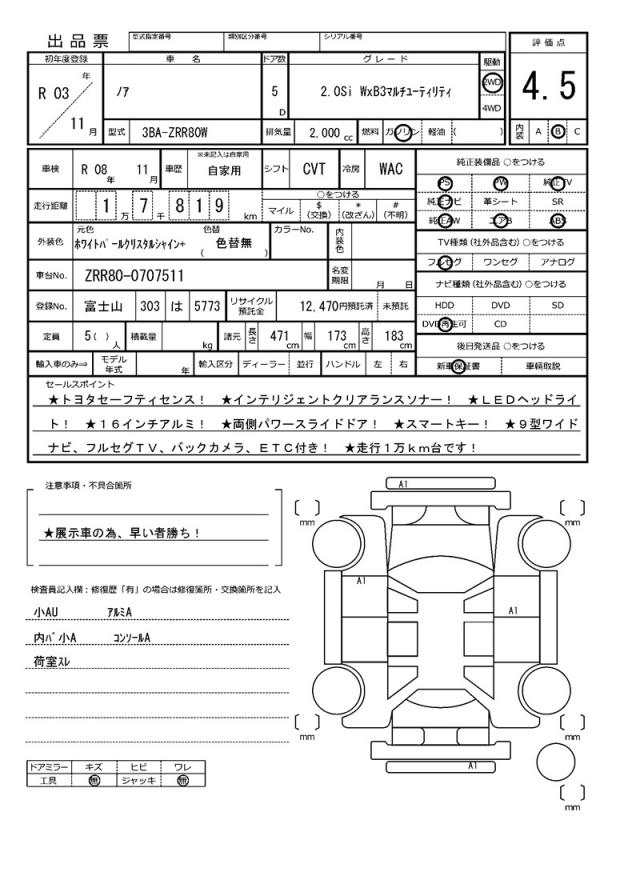 出品票
型式指定番号
類別区分番号
シリアル番号
評価点
4.5
初年度登録
車名
ドア数
グレード
駆動
R 03
年
11
月
ノア
5
D
2.0Si WxB3マルチユーティリティ
2WD
4WD
型式
3BA-ZRR80W
排気量
2,000 cc
燃料
ガソリン
軽油
( )
内装
A B C
車検
R 08 年 11 月
車歴
※未記入は自家用
自家用
シフト
CVT
冷房
WAC
走行距離
1 万 7 千 8 1 9 km
○をつける
マイル
$ (交換)
* (改ざん)
# (不明)
外装色
元色
ホワイトパールクリスタルシャイン+
色替
( 色替無 )
カラーNo.
内装色
車台No.
ZRR80-0707511
名変期限
月 日
登録No.
富士山
303
は
5773
リサイクル預託金
12,470円預託済
未預託
定員
5( )人
積載量
kg
諸元
長さ
471 cm
幅
173 cm
高さ
183 cm
輸入車のみ⇒
モデル年式
年
輸入区分
ディーラー
並行
ハンドル
左
右
純正装備品 ○をつける
PS
PW
純正TV
純正ナビ
革シート
SR
純正AW
エアB
ABS
TV種類 (社外品含む) ○をつける
フルセグ
ワンセグ
アナログ
ナビ種類 (社外品含む) ○をつける
HDD
DVD
SD
DVD再生可
CD
後日発送品 ○をつける
新車保証書
車輌取説
セールスポイント
★トヨタセーフティセンス！ ★インテリジェントクリアランスソナー！ ★ＬＥＤヘッドライ
ト！ ★１６インチアルミ！ ★両側パワースライドドア！ ★スマートキー！ ★９型ワイド
ナビ、フルセグＴＶ、バックカメラ、ＥＴＣ付き！ ★走行１万ｋｍ台です！
注意事項・不具合箇所
★展示車の為、早い者勝ち！
検査員記入欄：修復歴「有」の場合は修復箇所・交換箇所を記入
小AU アルミA
内バ小A コンソールA
荷室スレ
ドアミラー
キズ
ヒビ
ワレ
工具
無
ジャッキ
無
A1
A1
A1
A1
[ ]
mm
[ ]
mm
[ ]
mm
[ ]
mm
[ ]
mm